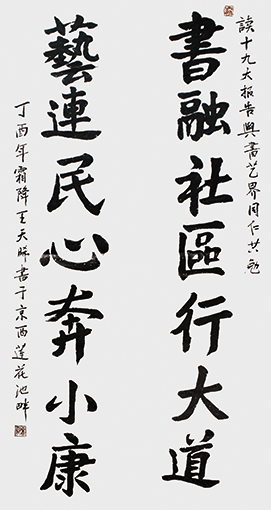 读十九大报告與書艺界同仁共勉
書融社區行大道
藝連民心奔小康
丁酉年霜降王天書于京西莲花池畔